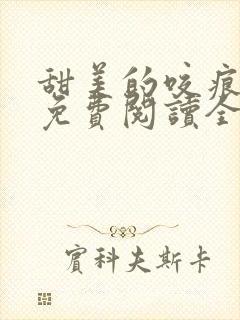 甜美的咬痕
免費閱讀全
賓科夫斯卡